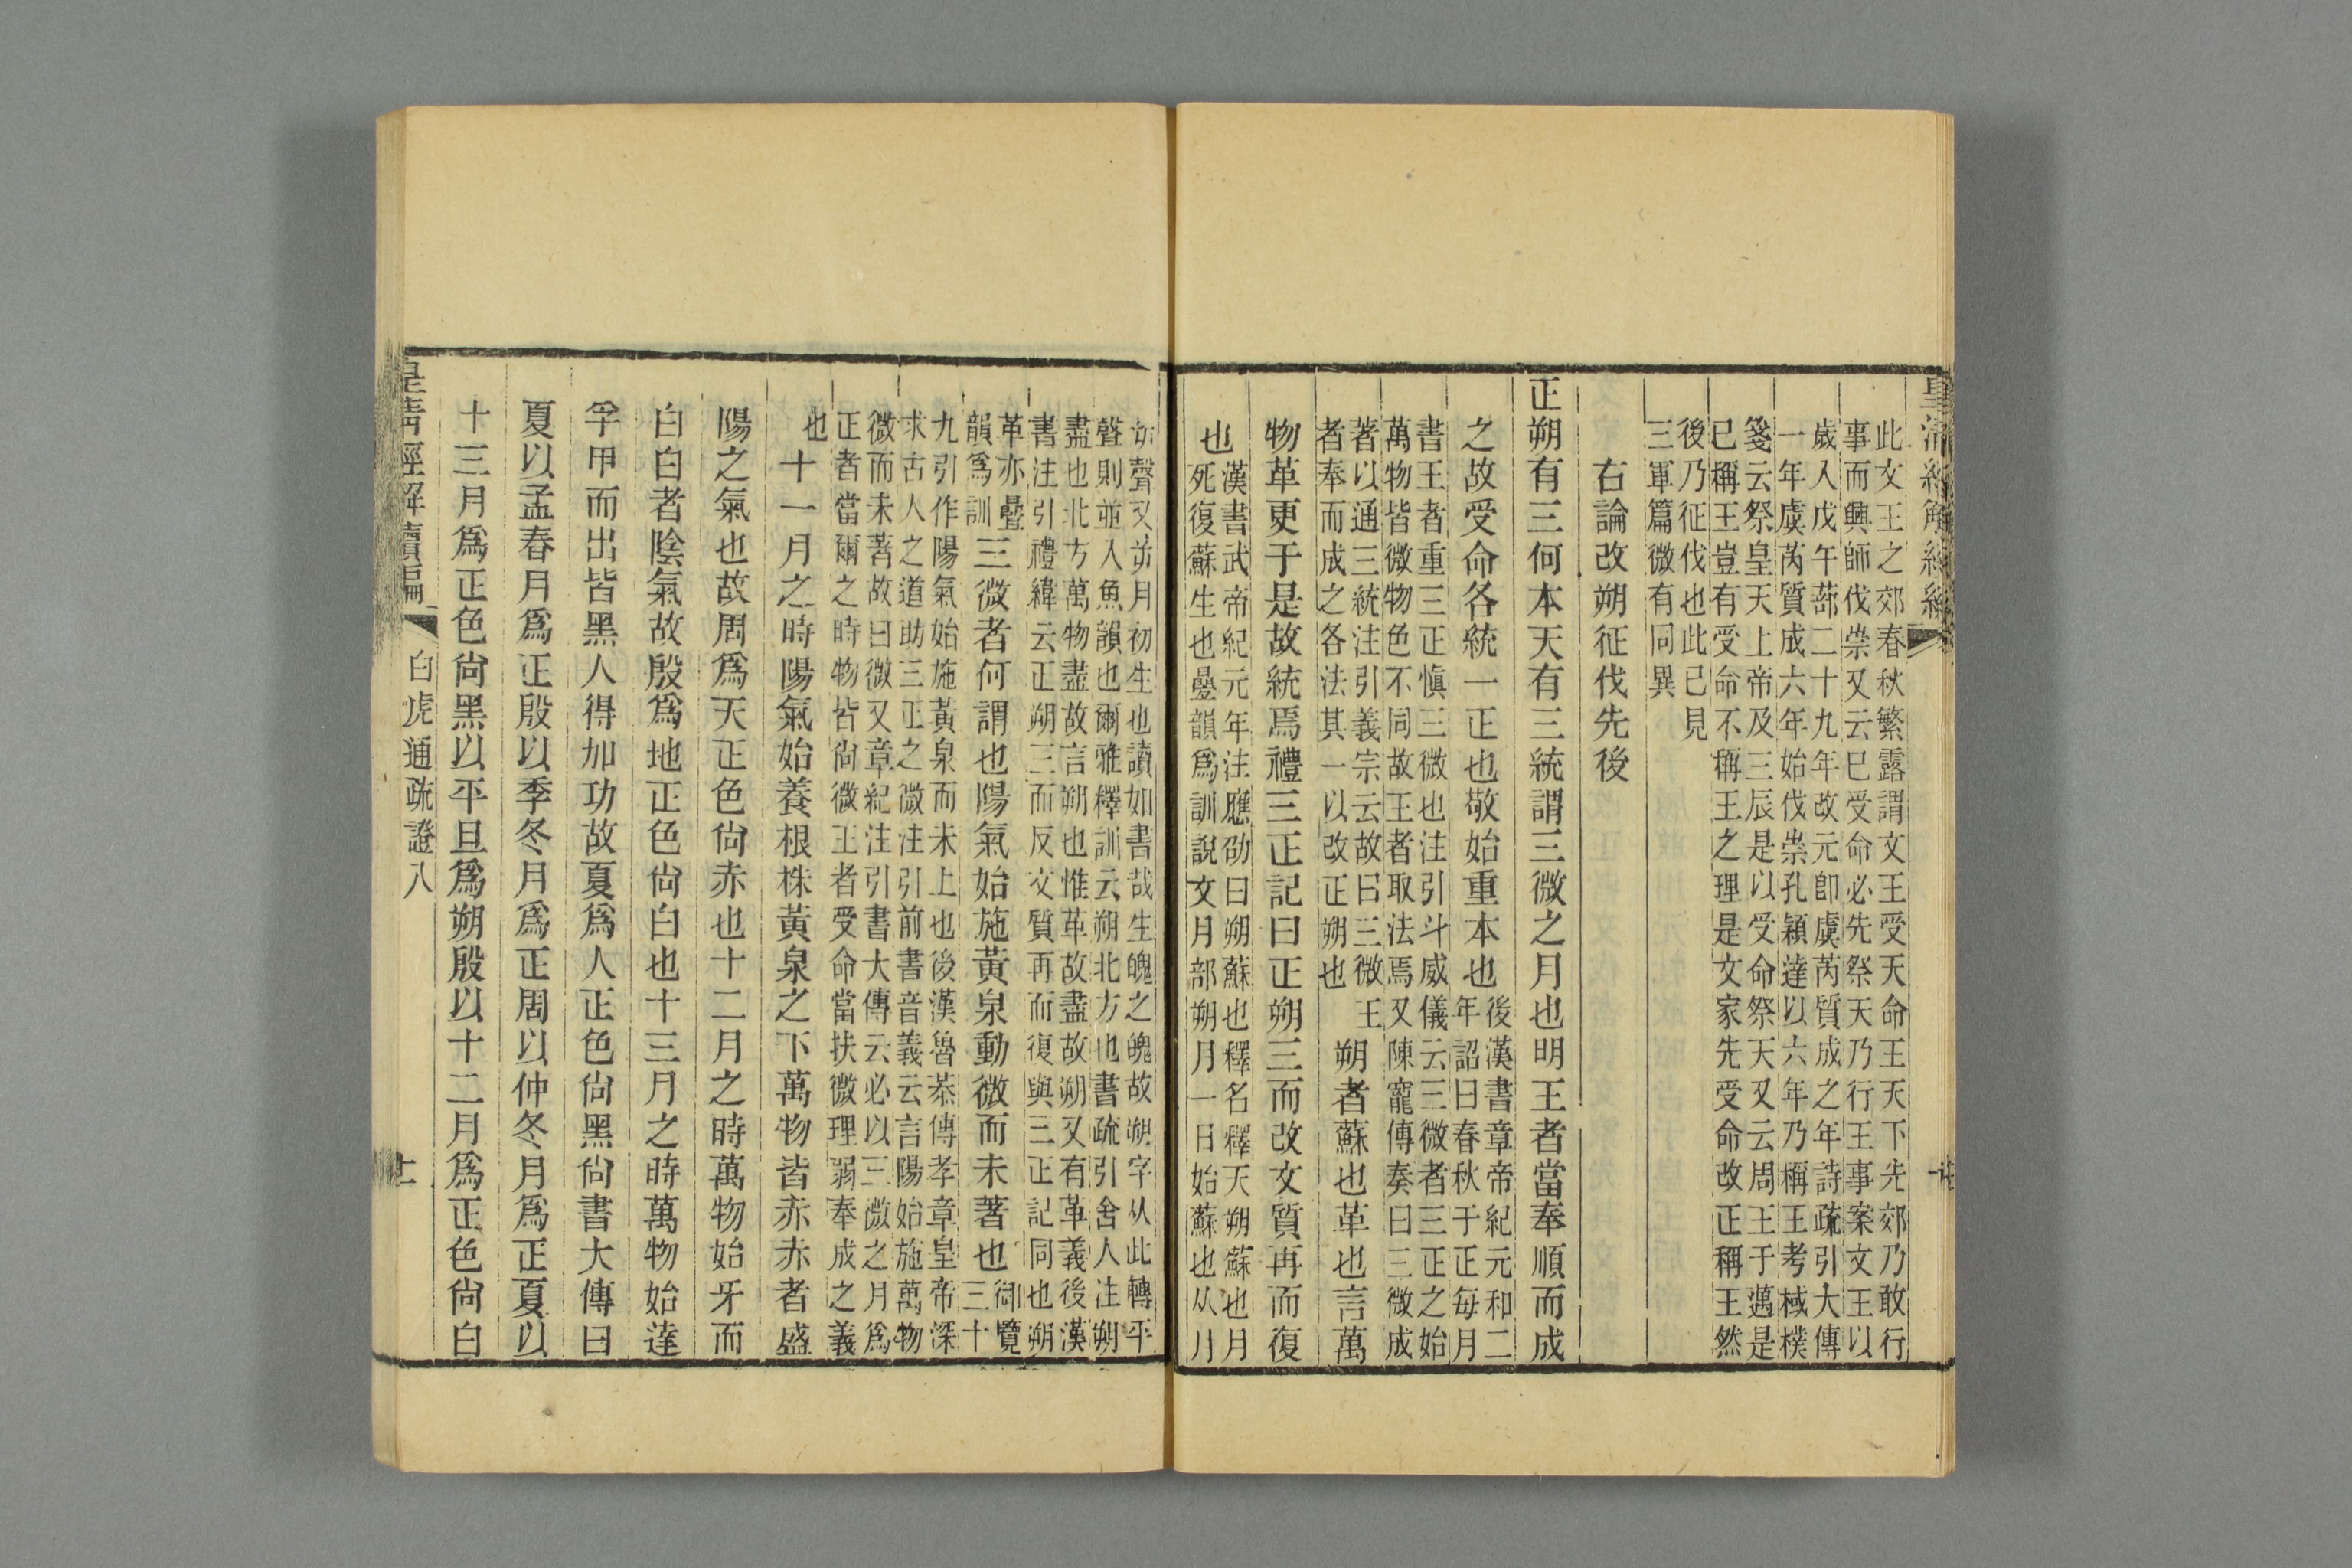 皇清經解續編
此文王之郊春秋繁露謂文王受天命王天下先郊乃敢行
事而興師伐崇又云已受命必先祭天乃行王事案文王以
歲入戊午蔀二十九年改元卽虞芮質成之年詩疏引大傳
一年虞芮質成六年始伐崇孔穎達以六年乃稱王考棫樸
箋云祭皇天上帝及三辰是以受命祭天又云周王于邁是
已稱王豈有受命不稱王之理是文家先受命改正稱王然
後乃征伐也此已見
三軍篇微有同異
右論改朔征伐先後
正朔有三何本天有三統謂三微之月也明王者當奉順而成
之故受命各統一正也敬始重本也
後漢書章帝紀元和二
年詔曰春秋于正每月
書王者重三正愼三微也注引斗威儀云三微者三正之始
萬物皆微物色不同故王者取法焉又陳寵傳奏曰三微成
著以通三統注引義宗云故曰三微王
者奉而成之各法其一以改正朔也
朔者蘇也革也言萬
物革更于是故統焉禮三正記曰正朔三而改文質再而復
也
漢書武帝紀元年注應劭曰朔蘇也釋名釋天朔蘇也月
死復蘇生也曡韻爲訓說文月部朔月一日始蘇也从月
屰聲又屰月初生也讀如書哉生魄之魄故朔字从此轉平
聲則並入魚韻也爾雅釋訓云朔北方也書疏引舍人注朔
盡也北方萬物盡故言朔也惟革故盡故朔又有革義後漢
書注引禮緯云正朔三而反文質再而復與三正記同也朔
革亦曡
韻爲訓
三微者何謂也陽氣始施黃泉動微而未著也
御覽
三十
九引作陽氣始施黃泉而未上也後漢魯恭傳孝章皇帝深
求古人之道助三正之微注引前書音義云言陽始施萬物
微而未著故曰微又章紀注引書大傳云必以三微之月爲
正者當爾之時物皆尙微王者受命當扶微理弱奉成之義
也
十一月之時陽氣始養根株黃泉之下萬物皆赤赤者盛
陽之氣也故周爲天正色尙赤也十二月之時萬物始牙而
白白者陰氣故殷爲地正色尙白也十三月之時萬物始達
孚甲而出皆黑人得加功故夏爲人正色尙黑尙書大傳曰
夏以孟春月爲正殷以季冬月爲正周以仲冬月爲正夏以
十三月爲正色尙黑以平旦爲朔殷以十二月爲正色尙白
皇淸經解續編
白虎通疏證八